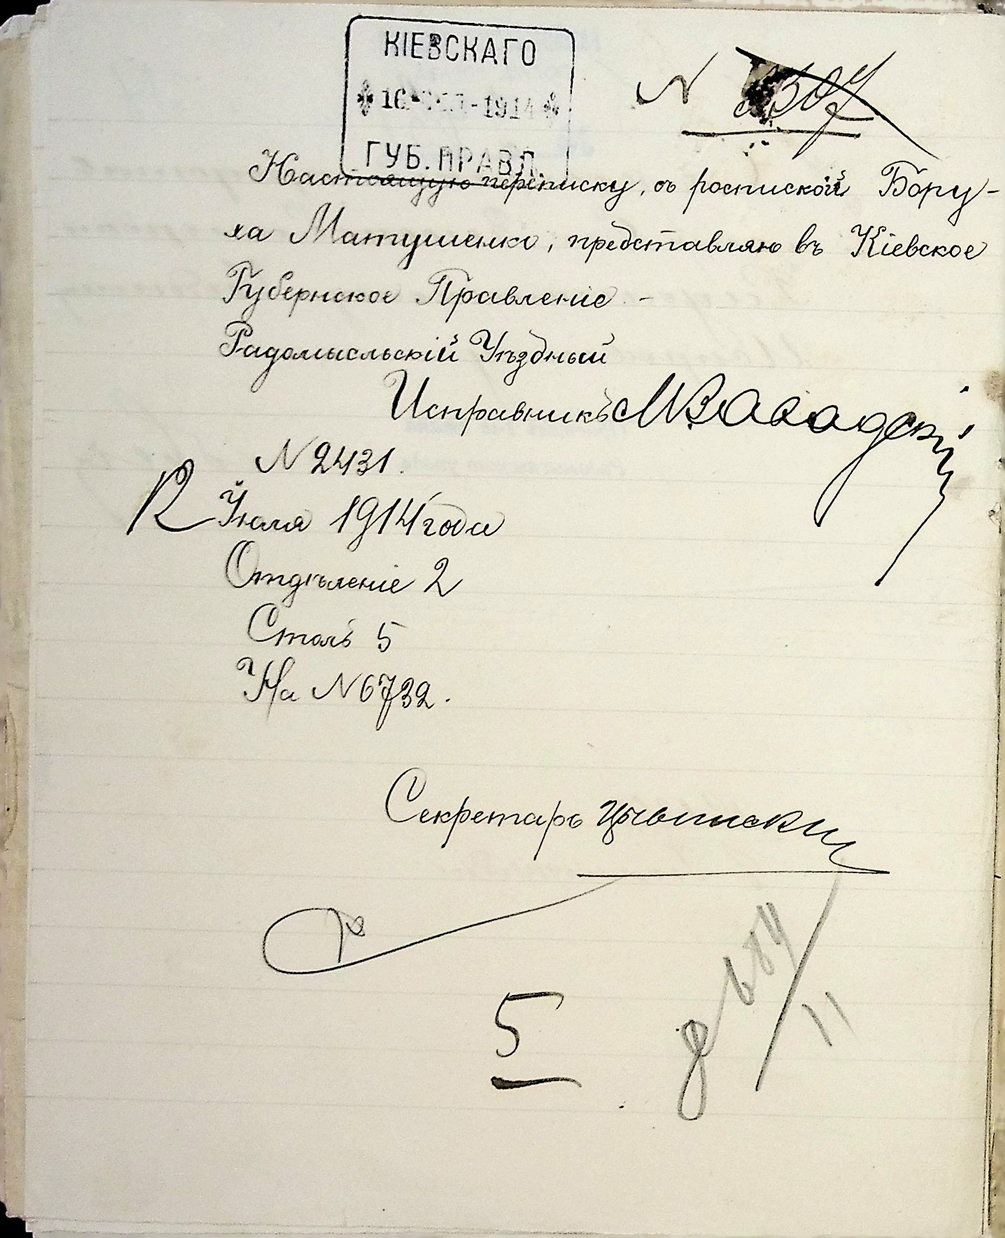 КІЕВСКАГО
16 1914
ГУБ. ПРАВЛ.
N
Настоящую переписку, съ роспиской Бору-
ха Матушенко, представляю въ Кіевское
Губернское Правленіе -
Радомысльскій Уѣздный
Исправникъ
N 2431.
12 Іюля 1914 года
Отдѣленіе 2
Столъ 5
На N 6732.
Секретарь
5